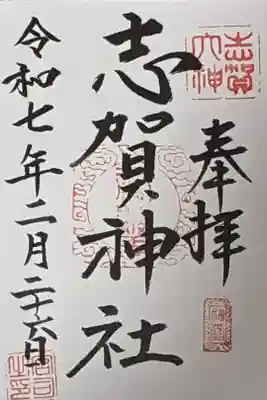 志賀
大神
奉拝
志賀神社
令和七年二月二十六日
宮司
之印